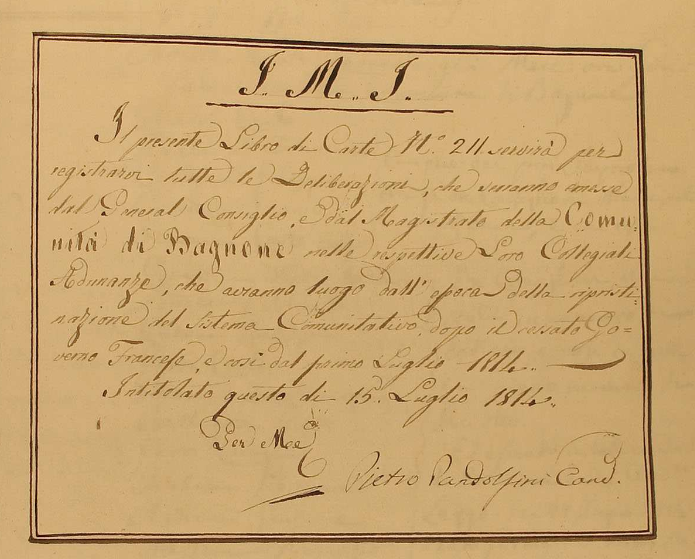 J. M. J.
Il presente Libro di Carte N.° 211 servirà per
registrarvi tutte le Deliberazioni, che saranno emesse
dal General Consiglio, e dal Magistrato della Comu=
nità di Bagnone nelle respettive Loro Collegiali
Adunanze, che avranno luogo dall' epoca della ripristi=
nazione del Sistema Comunitativo, dopo il cessato Go=
verno Francese, e così dal primo Luglio 1814.
Intitolato questo di 15. Luglio 1814.
Per Me
Pietro Pandolfini Canc.